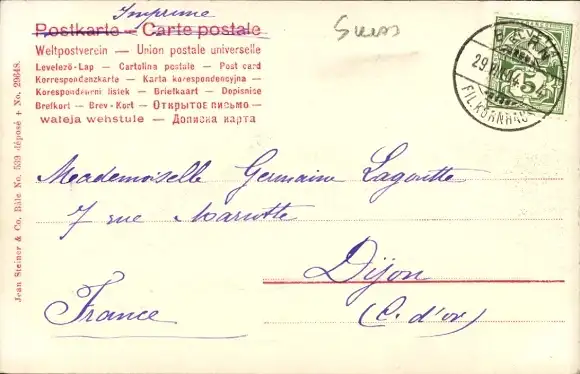 Imprimé
Suess
Postkarte — Carte postale
Weltpostverein — Union postale universelle
Levelező-Lap — Cartolina postale — Post card
Korrespondenzkarte — Karta korespondencyjna —
Korespondenzni listek — Briefkaart — Dopisnice
Brefkort — Brev-Kort — Открытое письмо —
waleja wehstule — Дописна карта
BERN
29.
FIL. KORNHAUS
5
Mademoiselle Germaine Lagoutte
7 rue Mariotte
Dijon
(C. d'or)
France
Jean Steiner & Co. Bâle No. 539 déposé + No. 29648.